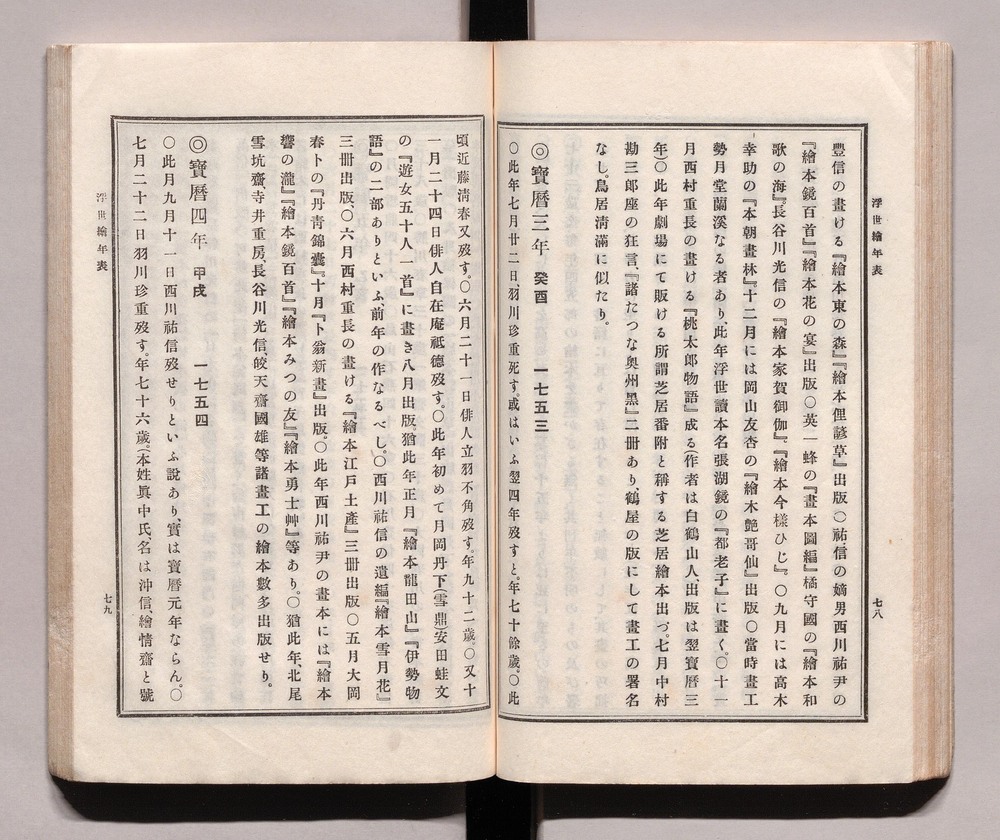 浮世繪年表
豐信の畫ける『繪本東の森』『繪本俚諺草』出版〇祐信の嫡男西川祐尹の
『繪本鏡百首』『繪本花の宴』出版〇英一蜂の『畫本圖編』橘守國の『繪本和
歌の海』長谷川光信の『繪本家賀御伽』『繪本今樣ひじ』。〇九月には高木
幸助の『本朝畫林』十二月には岡山友杏の『繪木艶哥仙』出版〇當時畫工
勢月堂蘭溪なる者あり、此年浮世讀本名張湖鏡の『都老子』に畫く。〇十一
月西村重長の畫ける『桃太郎物語』成る(作者は白鶴山人、出版は翌寶暦三
年)〇此年劇場にて販ける所謂芝居番附と稱する芝居繪本出づ。七月中村
勘三郎座の狂言、『諸たつな奥州黑』二册あり鶴屋の版にして畫工の署名
なし。鳥居淸滿に似たり。
◎寶暦三年 癸酉 一七五三
〇此年七月廿二日、羽川珍重死す。或はいふ翌四年歿すと。年七十餘歲。〇此
七八
頃近藤淸春又歿す。〇六月二十一日俳人立羽不角歿す。年九十二歲。〇又十
一月二十四日俳人自在庵祗德歿す。〇此年初めて月岡丹下(雪鼎)安田蛙文
の『遊女五十人一首』に畫き八月出版猶此年正月『繪本龍田山』『伊勢物
語』の二部ありといふ、前年の作なるべし。〇西川祐信の遺編『繪本雪月花』
三册出版、〇六月西村重長の畫ける『繪本江戸土產』三册出版〇五月大岡
春卜の『丹靑錦囊』十月『卜翁新畫』出版。〇此年西川祐尹の畫本には『繪本
響の瀧』『繪本鏡百首』『繪本みつの友』『繪本勇士艸』等あり。〇猶此年、北尾
雪坑齋、寺井重房、長谷川光信、皎天齋國雄等諸畫工の繪本數多出版せり。
◎寶暦四年 甲戌 一七五四
〇此月九月十一日西川祐信歿せりといふ說あり、實は寶暦元年ならん。〇
七月二十二日羽川珍重歿す。年七十六歲。(本姓眞中氏名は沖信、繪情齋と號
浮世繪年表
七九